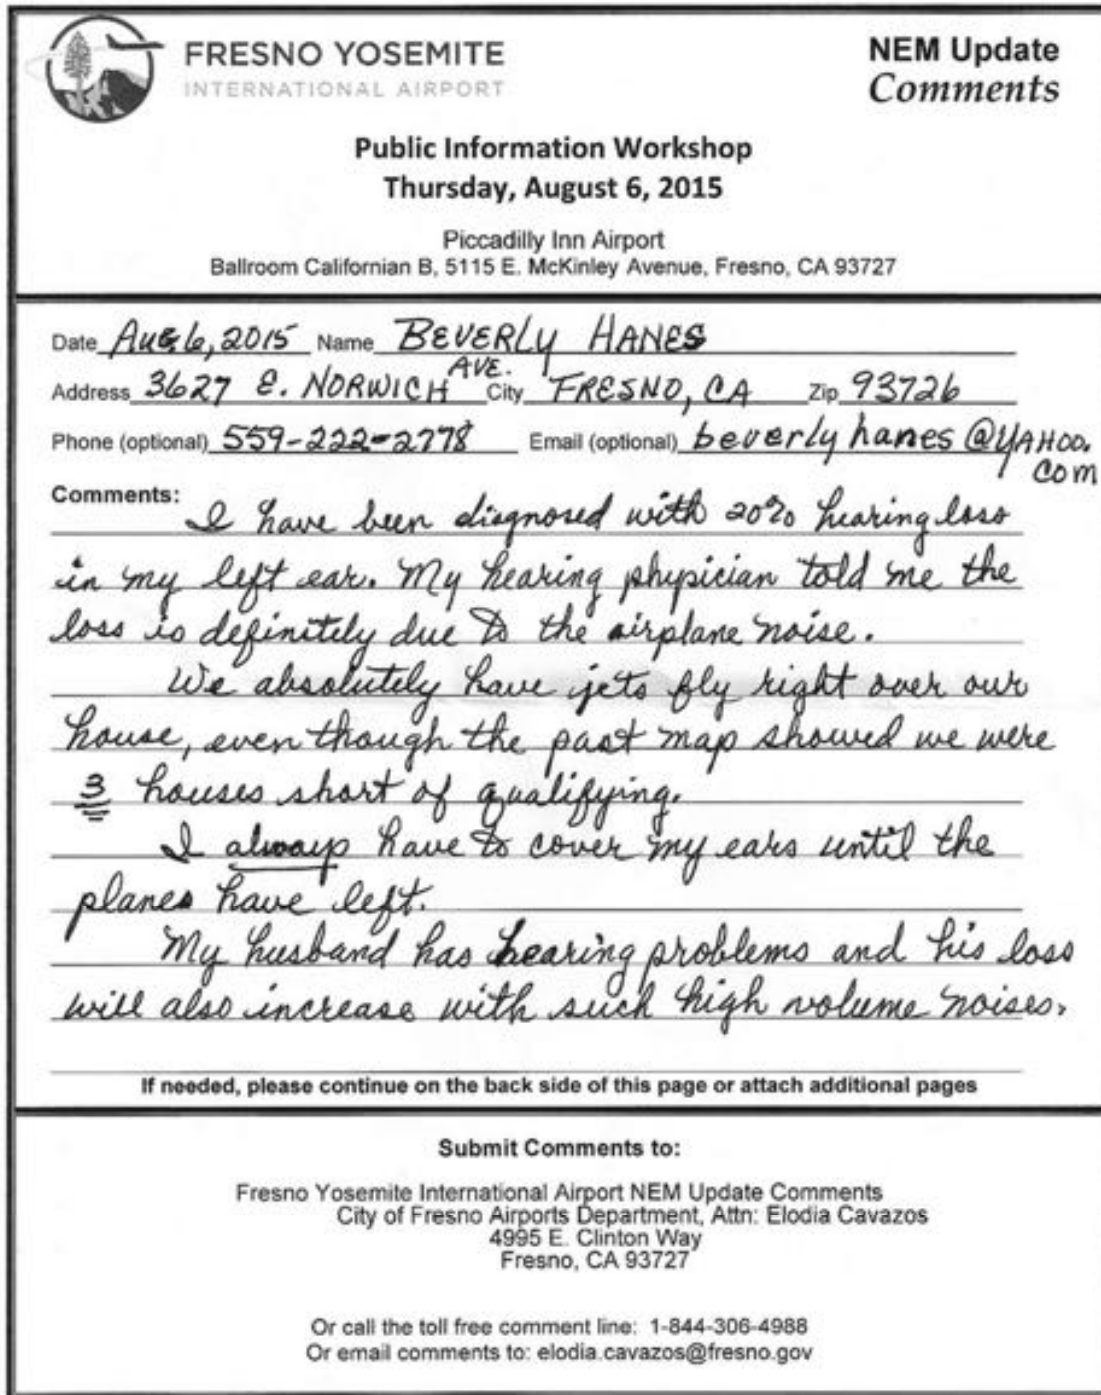 FRESNO YOSEMITE
INTERNATIONAL AIRPORT
NEM Update
Comments
Public Information Workshop
Thursday, August 6, 2015
Piccadilly Inn Airport
Ballroom Californian B, 5115 E. McKinley Avenue, Fresno, CA 93727
Date Aug. 6, 2015 Name BEVERLY HANES
Address 3627 E. NORWICH AVE. City FRESNO, CA Zip 93726
Phone (optional) 559-222-2778 Email (optional) beverly hanes @YAHOO.
com
Comments: I have been diagnosed with 20% hearing loss
in my left ear. My hearing physician told me the
loss is definitely due to the airplane noise.
We absolutely have jets fly right over our
house, even though the past map showed we were
3 houses short of qualifying.
I always have to cover my ears until the
planes have left.
My husband has hearing problems and his loss
will also increase with such high volume noises.
If needed, please continue on the back side of this page or attach additional pages
Submit Comments to:
Fresno Yosemite International Airport NEM Update Comments
City of Fresno Airports Department, Attn: Elodia Cavazos
4995 E. Clinton Way
Fresno, CA 93727
Or call the toll free comment line: 1-844-306-4988
Or email comments to: elodia.cavazos@fresno.gov